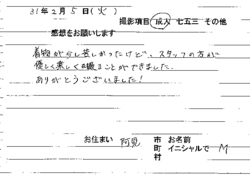 31年2月5日(火)
撮影項目 成人 七五三 その他
感想をお願いします
着物が少し苦しかったけど、スタッフの方が
優しく楽しく撮ることができました。
ありがとうございました!
お住まい 阿見 市 お名前
町 イニシャルで M
村